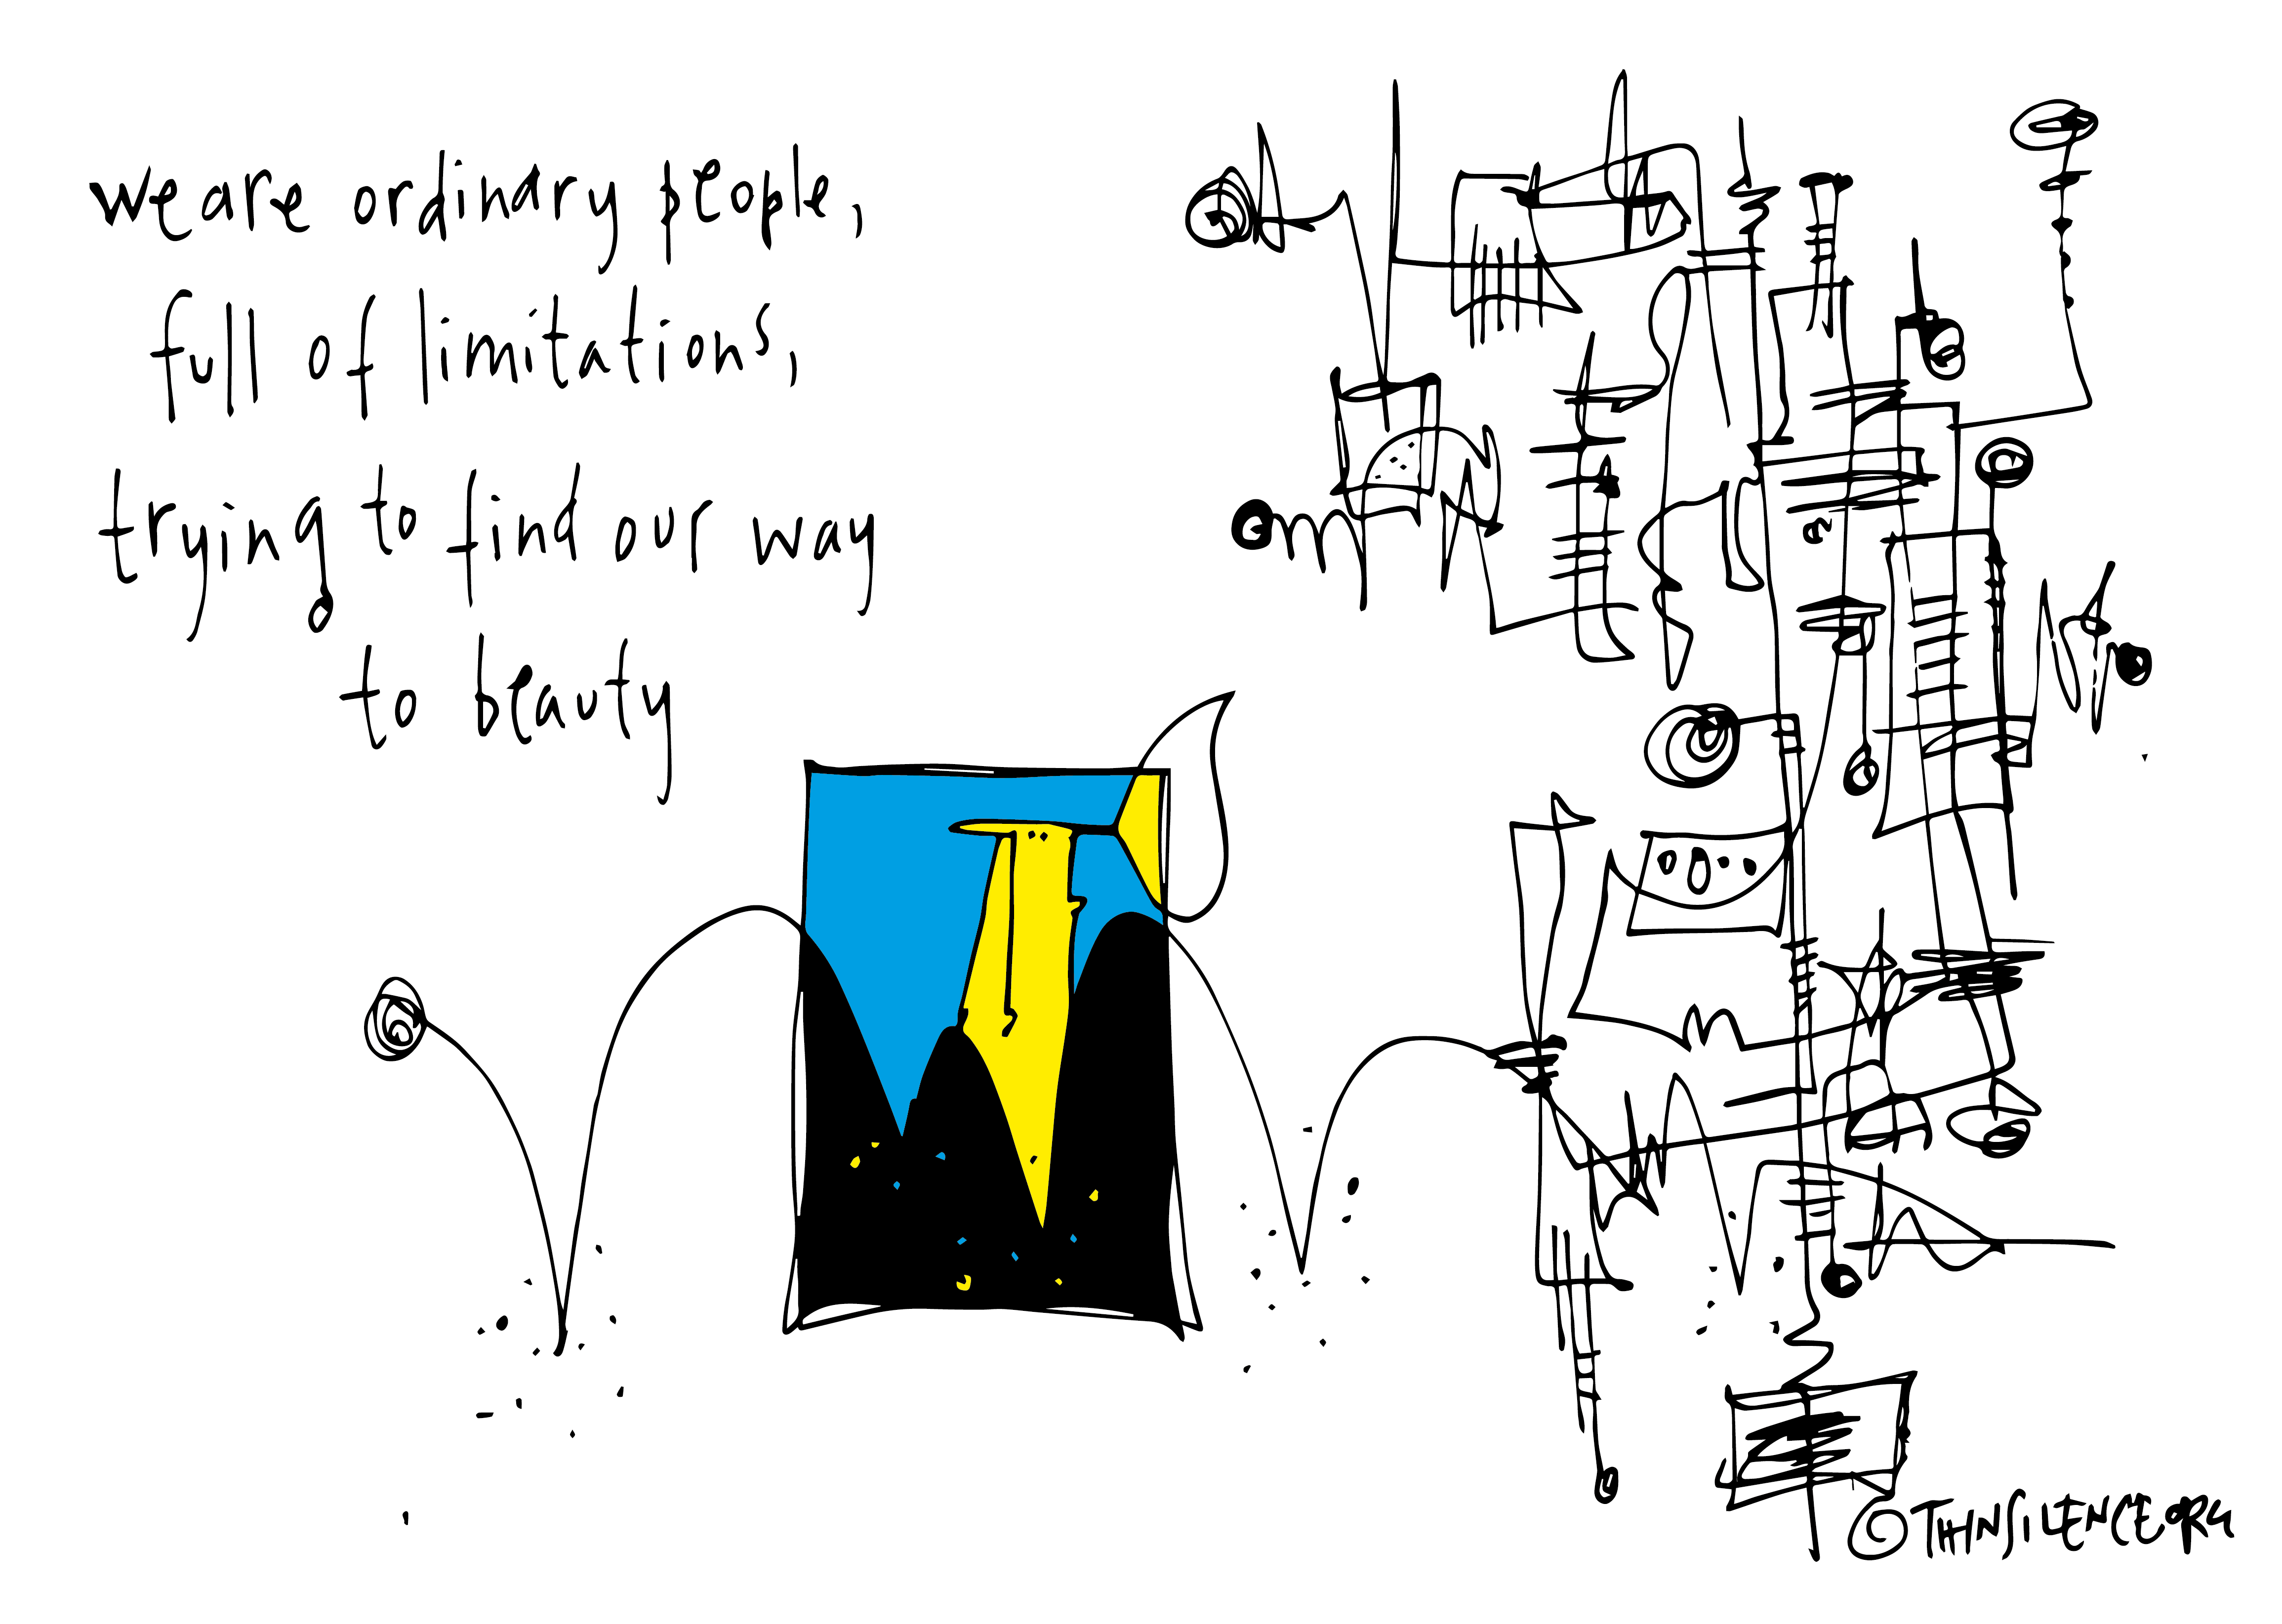 we are ordinary people,
full of limitations,
trying to find our way
to beauty
© THINSILENCE.ORG